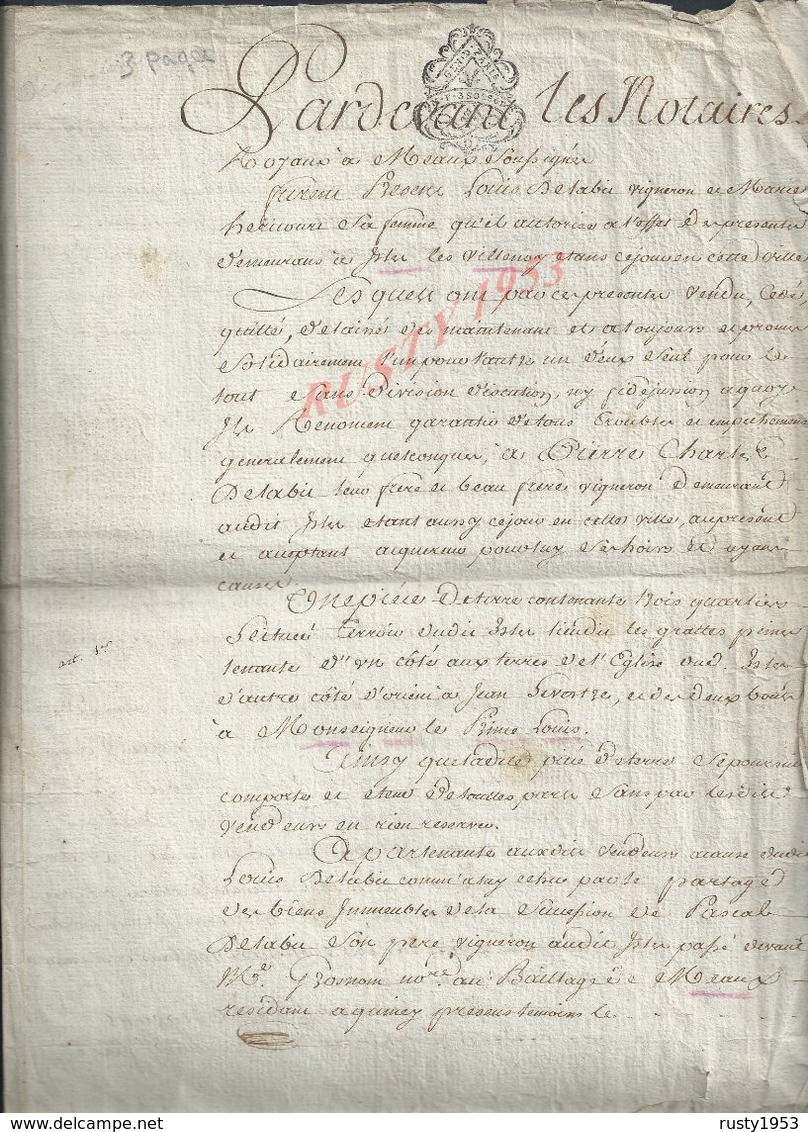 3 pages
GEN. PARIS
Pardevant les Notaires
Royaux à Meaux soussignés
furent presens Louis Delabie vigneron et Marie
hericourt sa femme qu'il autorise a l'effet des presentes
demeurans à Isles les Villenoy etans cejour en cette ville
Lesquels ont par ces presentes vendu, cedé,
quitté, delaissé des maintenant et a toujours et promis
solidairement l'un pour l'autre un d'eux seul pour le
tout sans division discution, ny fidejussion a quoy
Ils Renoncent garantir de tous troubles et empechemens
generalement quelconques, a Pierre Charles
Delabie leur frere et beau frere vigneron demeurant
audit Isles etant aussy cejour en cette ville, a ce present
et acceptant acquereur pour luy ses hoirs et ayans
causes.
art. 1er
Une piece de terre contenante trois quartiers
terroir dudit Isles lieudit les
tenante d'un côté aux terres de l'Eglise dud. Isles
d'autre côté d'orient à Jean et des deux bouts
à Monseigneur le Prince Louis.
Ainsy que ladite piece de terre se poursuit
comporte et etend de touttes parts sans par lesdits
vendeurs en rien reserver.
Apartenante auxdits vendeurs acause dudit
Louis Delabie comme a luy echue par le partage
des biens Immeubles de la succession de Pascal
Delabie son pere vigneron audit Isles passé devant
Me. Grosnom nore. au Bailliage de Meaux
residant a quincy presens temoins le
RUSTY 1953
delcampe.net
rusty1953